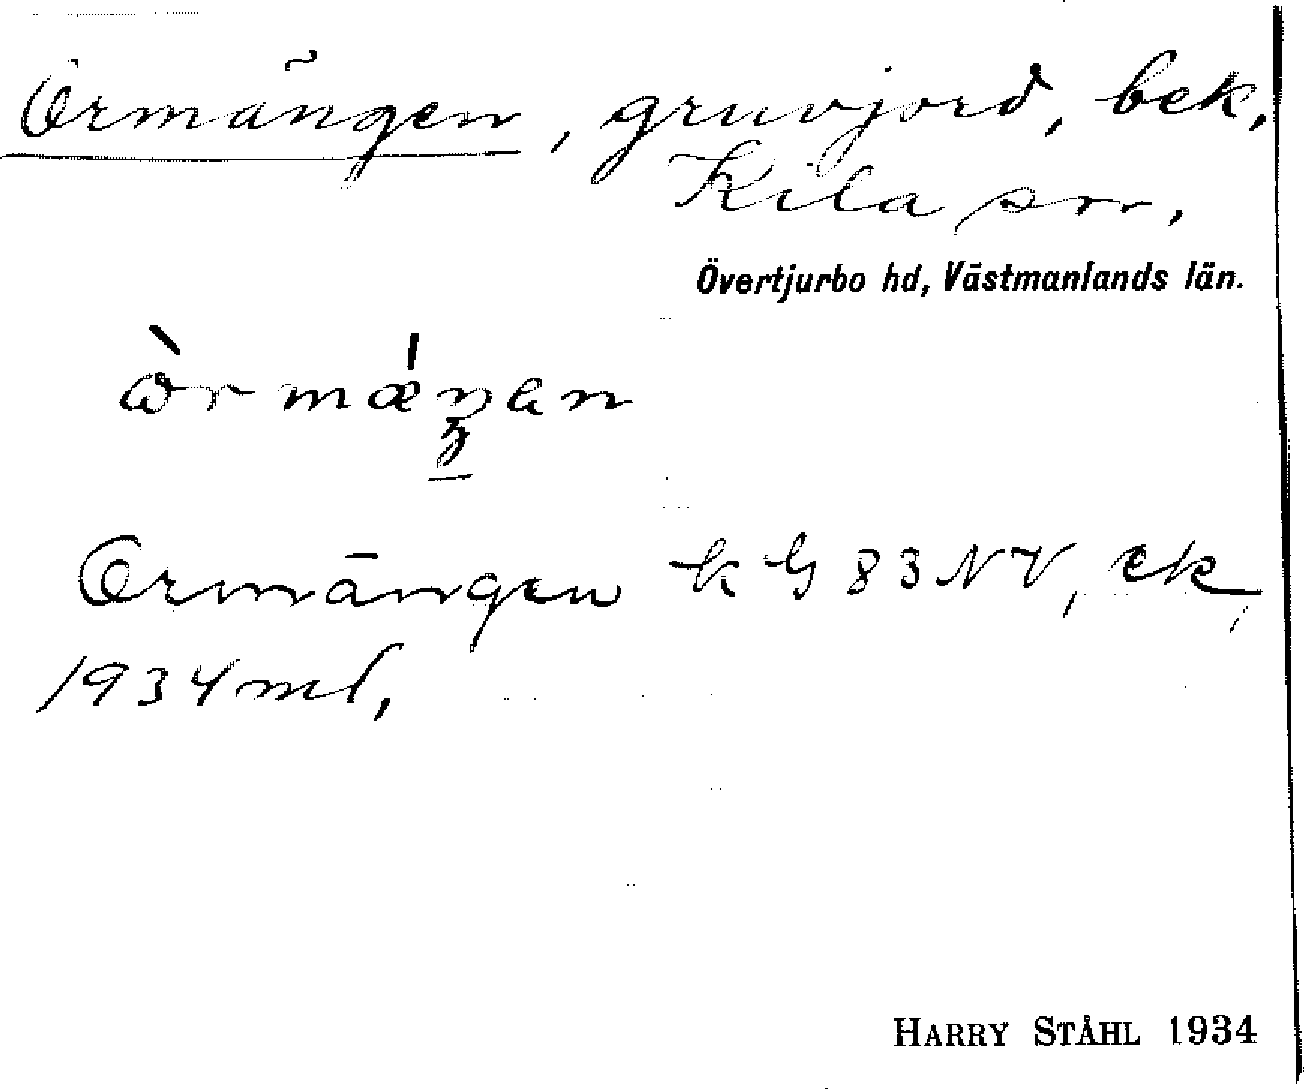 Ormängen, gruvjord, bek.
Kila sn.
Övertjurbo hd, Västmanlands län.
Ormängen k G 83 NV, ek,
1934 ml,
HARRY STÅHL 1934